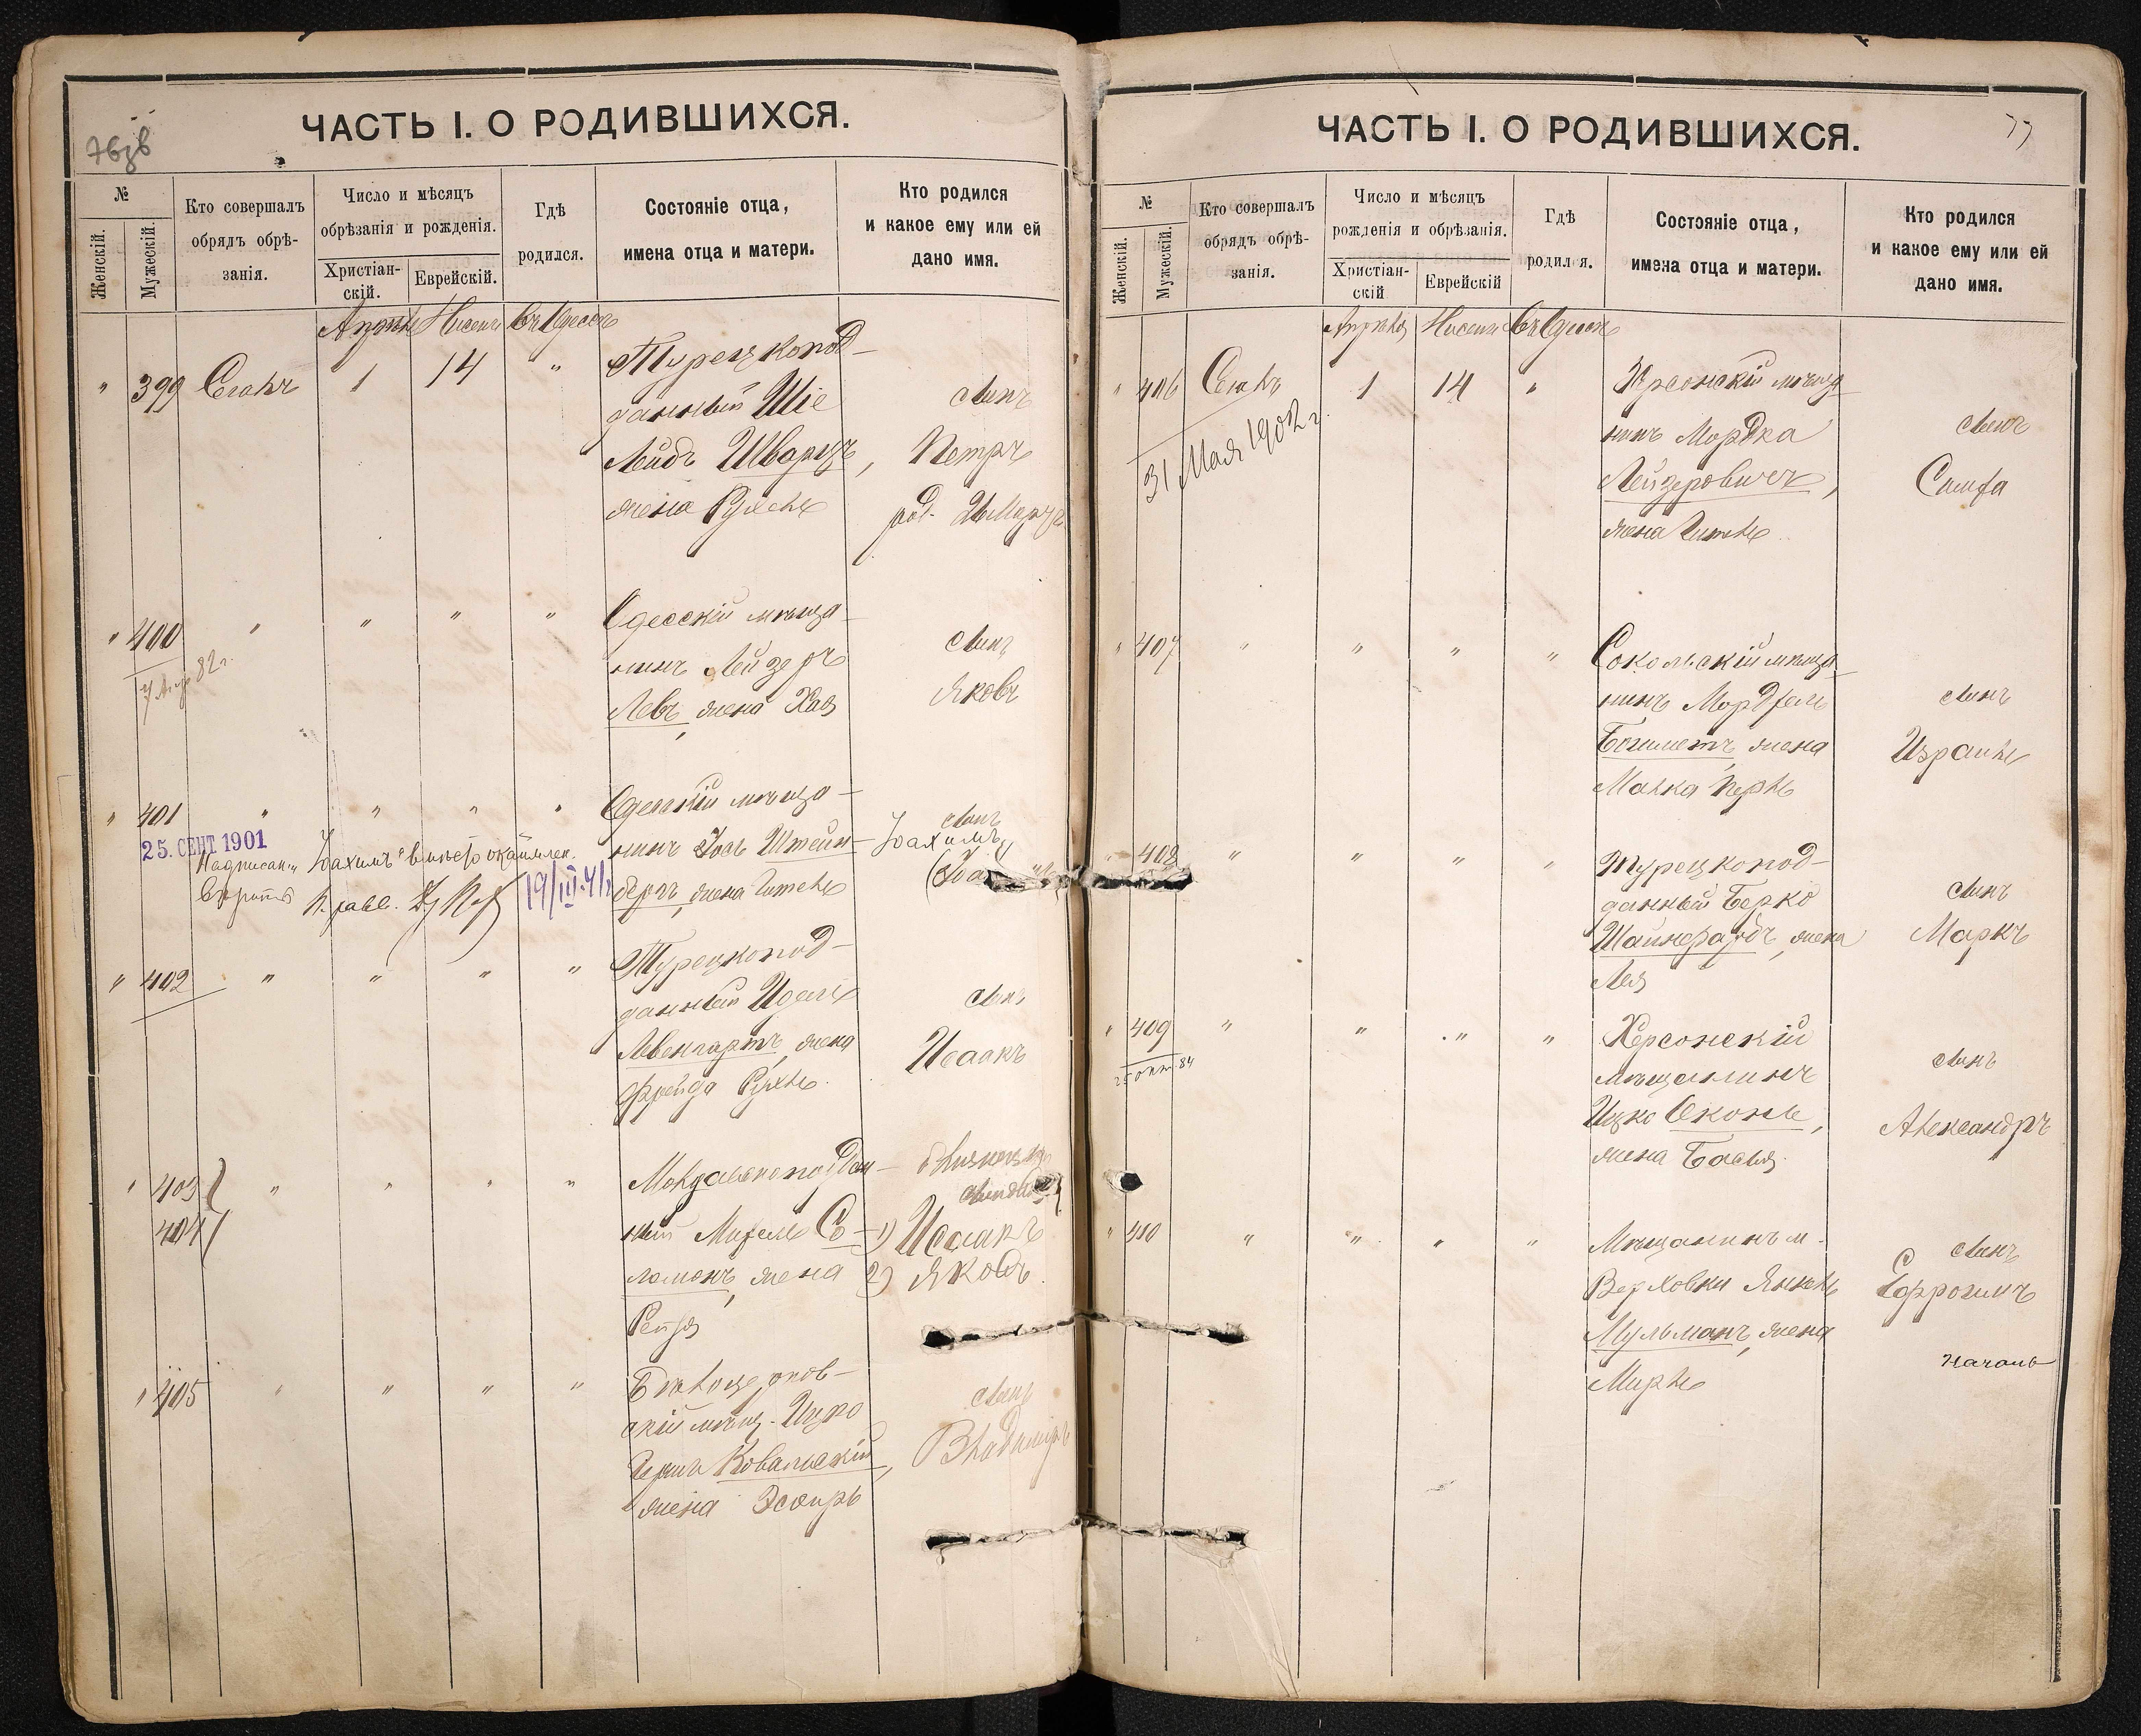 ЧАСТЬ I. О РОДИВШИХСЯ.
№
Женскій.
Мужескій.
Кто совершалъ
обрядъ обрѣ-
занія.
Число и мѣсяцъ
обрѣзанія и рожденія.
Христіан-
скій.
Еврейскій.
Гдѣ
родился.
Состояніе отца,
имена отца и матери.
Кто родился
и какое ему или ей
дано имя.
Апрѣль Нисенъ Въ Одессѣ
" 399 1 14 " Турецкопод-
данный Шіе
Лейбъ Шварцъ,
жена Рухель
сынъ
Петръ
" 400 " " " "
Одесскій мѣща-
нинъ Лейзеръ
Левъ, жена Хая
сынъ
Яковъ
" 401 " " " "
25. СЕНТ 1901
Одесскій мѣща-
нинъ Іось Штейн-
бергъ, жена Гитель
сынъ
Іоахимъ
19/III.41
" 402 " " " "
Турецкопод-
данный Идель
Левенгартъ, жена
Фрейда Рухль
сынъ
Исаакъ
" 403 " " " "
404
Молдавскоподдан-
ный Михель Со-
ломонъ, жена
Рейзя
близнецы
1) Исаакъ
2) Яковъ
" 405 " " " "
Бѣлоцерков-
скій мѣщ. Ицко
Гершъ Ковальскій,
жена Эсѳирь
сынъ
Владиміръ
ЧАСТЬ I. О РОДИВШИХСЯ.
77
№
Женскій.
Мужескій.
Кто совершалъ
обрядъ обрѣ-
занія.
Число и мѣсяцъ
рожденія и обрѣзанія.
Христіан-
скій
Еврейскій
Гдѣ
родился.
Состояніе отца,
имена отца и матери.
Кто родился
и какое ему или ей
дано имя.
Апрѣля Нисенъ Въ Одессѣ
" 406 1 14 "
31 Мая 1902 г.
Херсонскій мѣща-
нинъ Мордка
Лейдеровичъ,
жена Гитель
сынъ
Симха
" 407 " " " "
Сокольскій мѣща-
нинъ Мордхель
жена
Малка Перль
сынъ
Израиль
" 408 " " " "
Турецкопод-
данный Берко
Шайнфардъ, жена
Лея
сынъ
Маркъ
" 409 " " " "
25 окт. 84
Херсонскій
мѣщанинъ
Ицко Оконь,
жена Бася
сынъ
Александръ
" 410 " " " "
Мѣщанинъ м.
Верховки Янкель
Мульманъ, жена
Мирль
сынъ
Ефроимъ